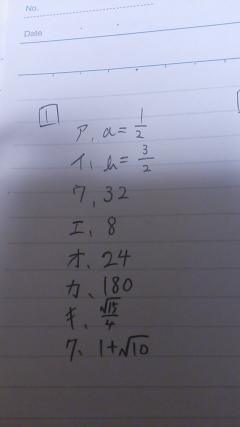 No.
Date
1
ア、a=1/2
イ、b=3/2
ウ、32
エ、8
オ、24
カ、180
キ、√15/4
ク、1+√10